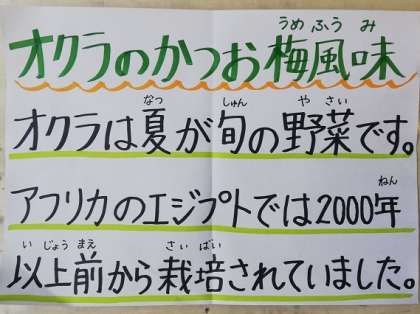 うめふうみ
オクラのかつお梅風味
なつ しゅん やさい
オクラは夏が旬の野菜です。
ねん
アフリカのエジプトでは2000年
いじょうまえ さいばい
以上前から栽培されていました。